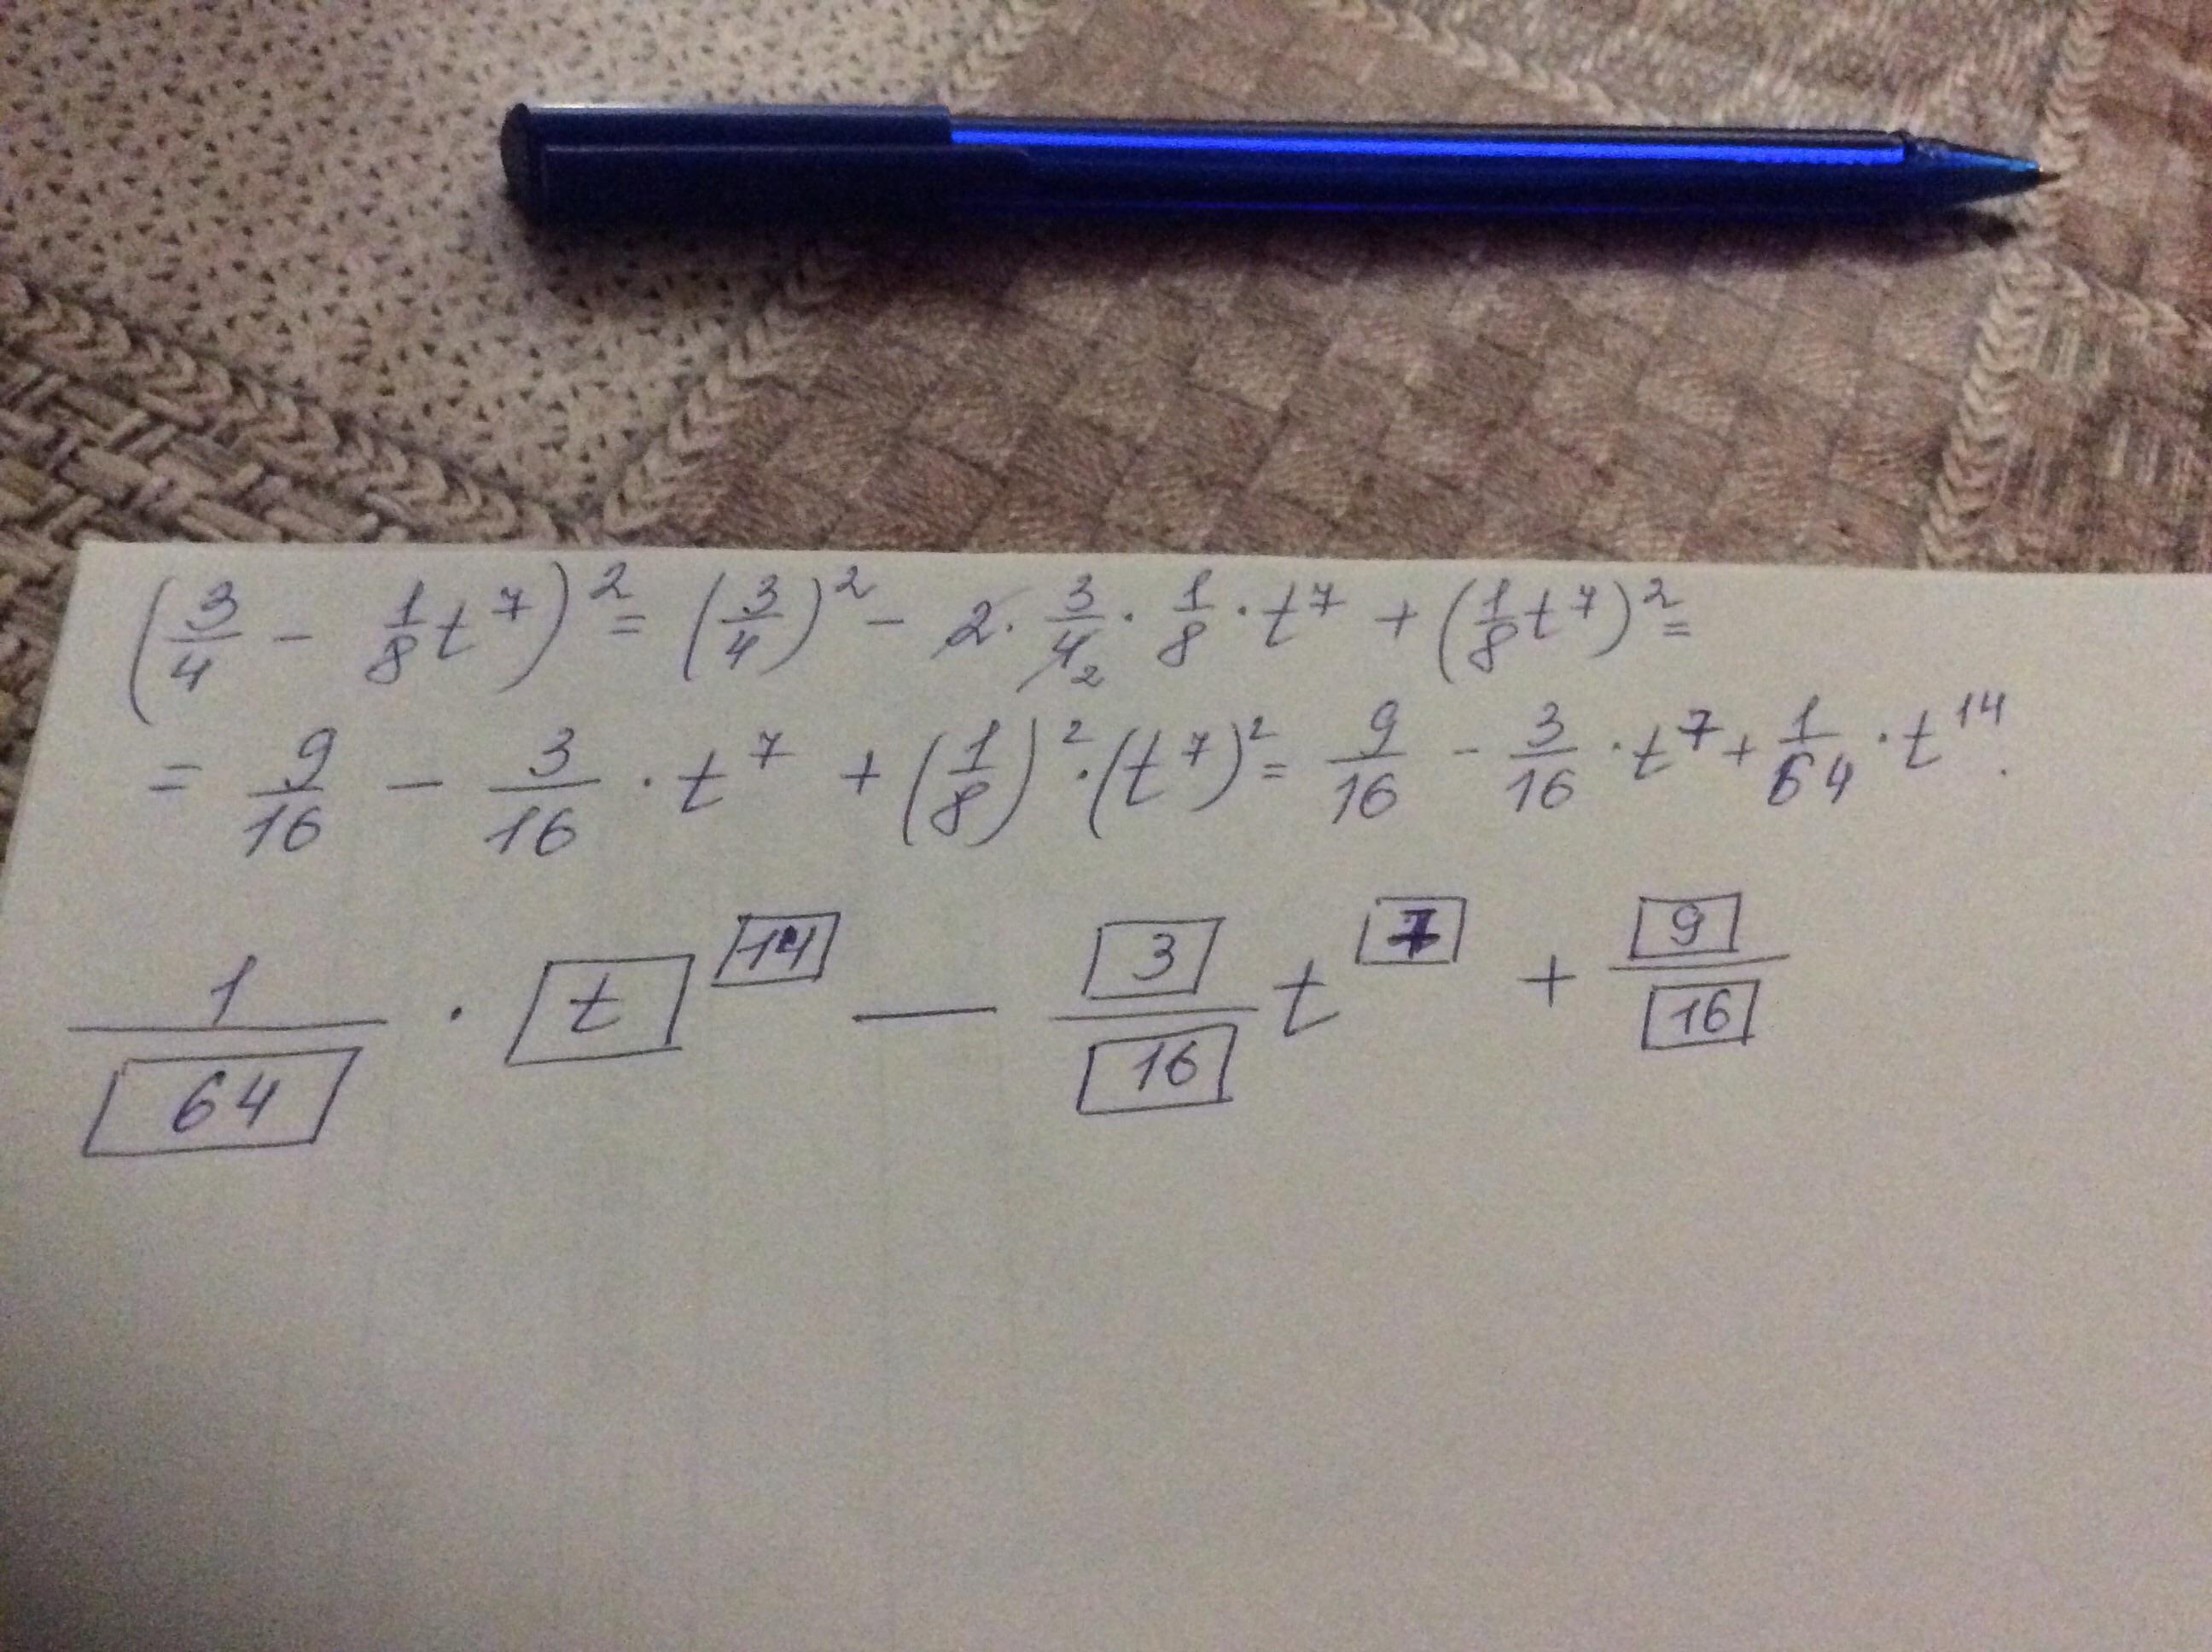 (3/4 - 1/8 t^7)^2 = (3/4)^2 - 2 · 3/4 2 · 1/8 · t^7 + (1/8 t^7)^2 =
= 9/16 - 3/16 · t^7 + (1/8)^2 · (t^7)^2 = 9/16 - 3/16 · t^7 + 1/64 · t^14.
1/64 · t^14 — 3/16 t^7 + 9/16